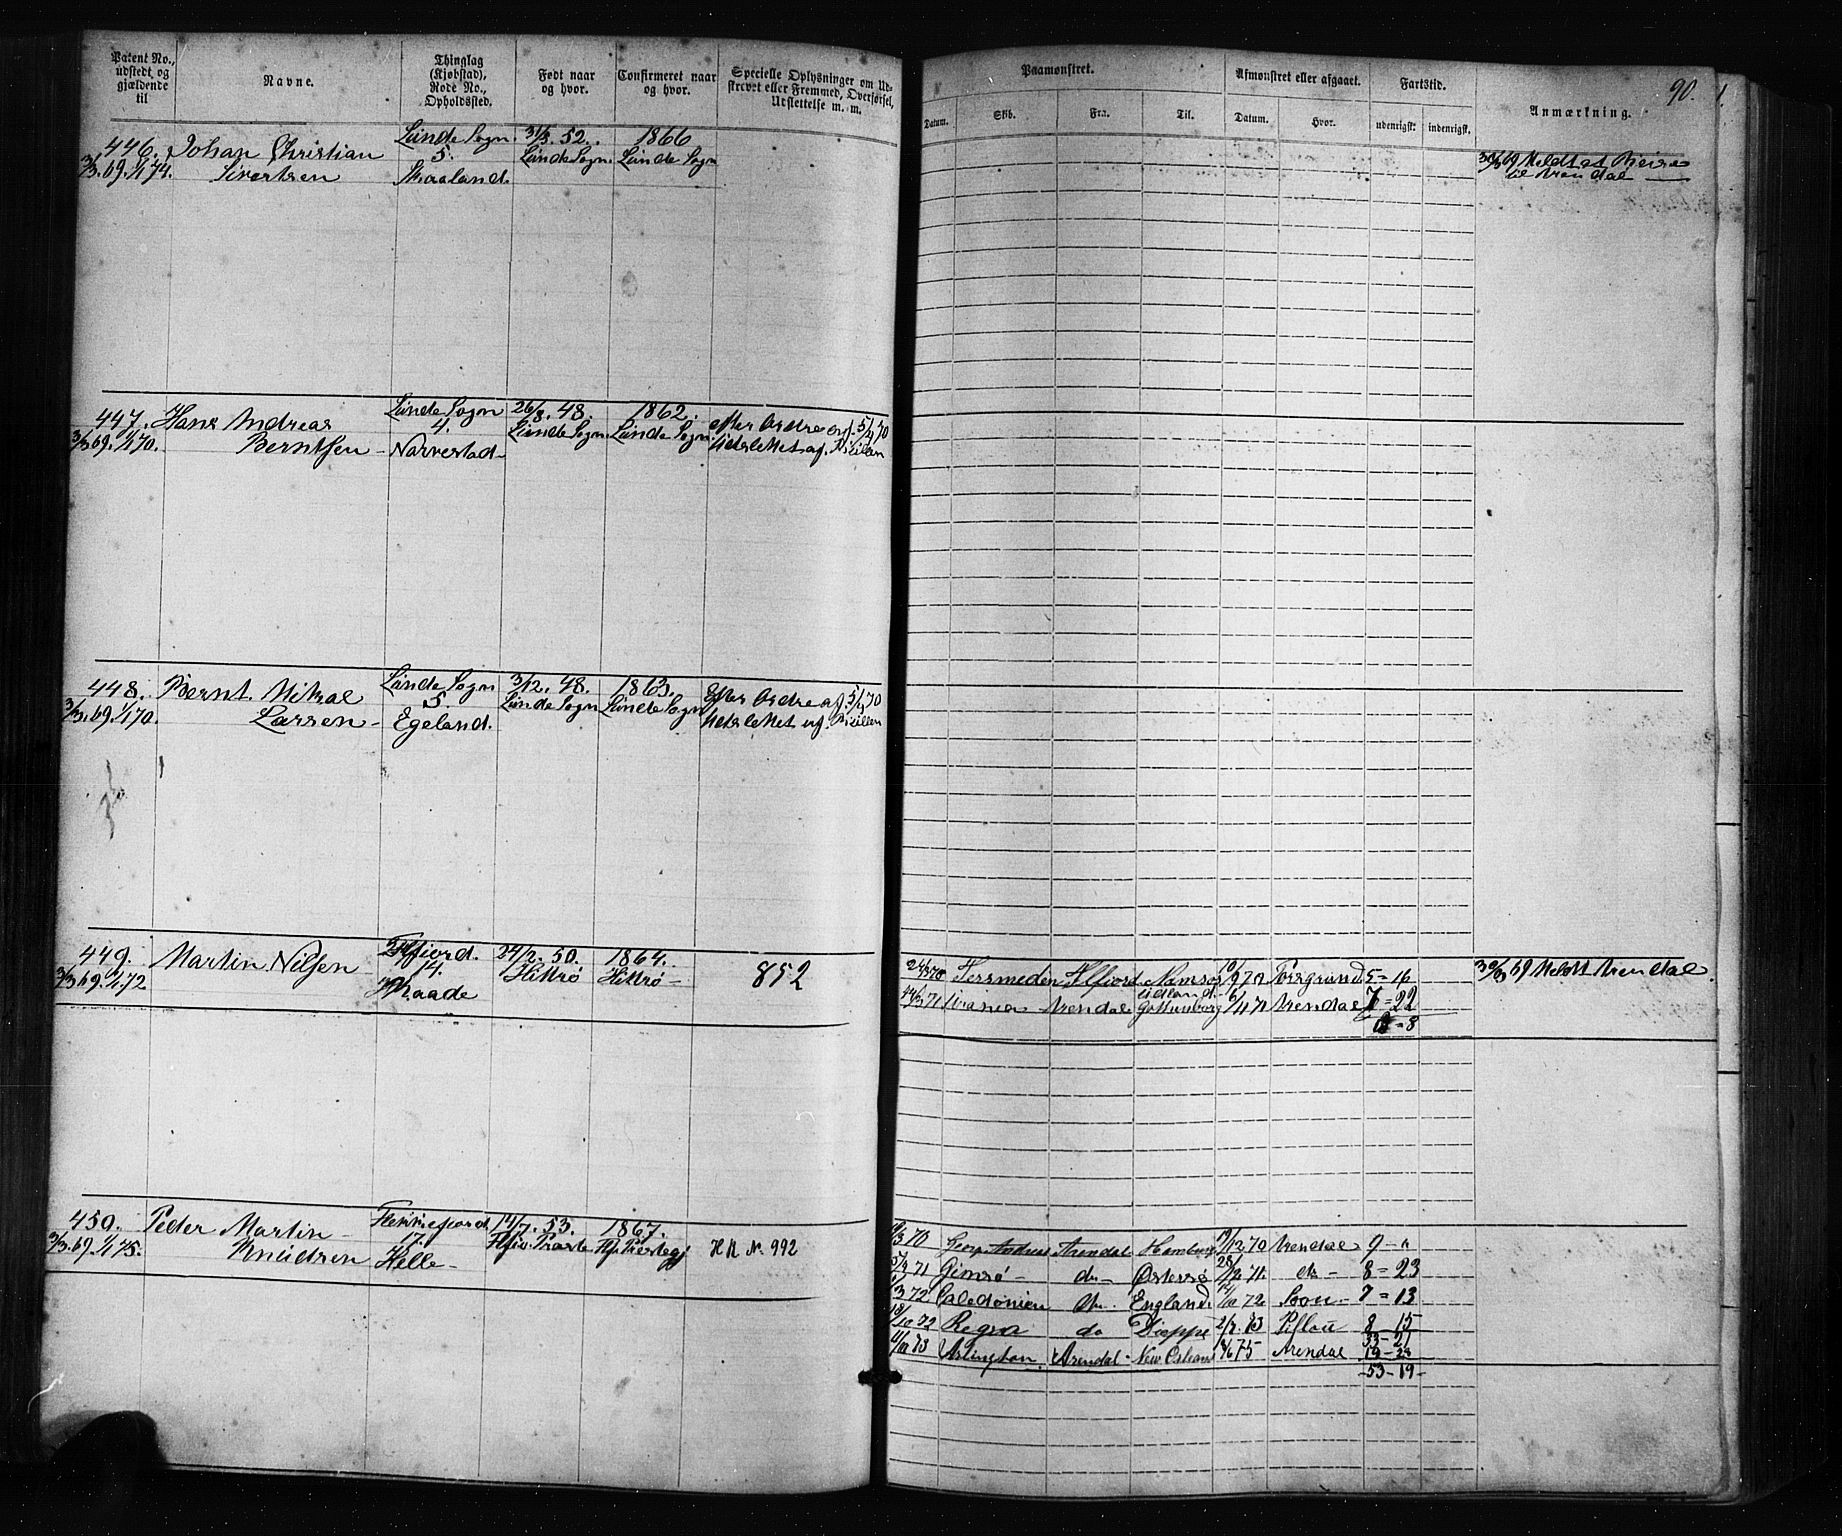 Patent No., udstedt og gjældende til
Navne.
Thinglag (Kjøbstad), Rode No., Opholdssted.
Født naar og hvor.
Confirmeret naar og hvor.
Specielle Oplysninger om Udskrevet eller Fremmed, Overførsel, Udslettelse m. m.
Paamønstret.
Datum.
Skib.
Fra.
Til.
Afmønstret eller afgaaet.
Datum.
Hvor.
Fartstid.
udenrigsk.
indenrigsk.
Anmærkning.
90.
446. Johan Christian Lunde Sogn. 31/3. 52. 1866
3/3.69.1/1 74. Sivertsen 5. Skaaland. Lunde Sogn. Lunde Sogn
30/3 69 Meldt at Reise
til Arendal
447. Hans Andreas Lunde Sogn 26/8. 48. 1862. efter Ordre af 5/4 70
3/3.69.1/1 70. Berntsen 4. Narvestad Lunde Sogn. Lunde Sogn. Udslettet af Rullen
448. Bernt Mikal Lunde Sogn 3/12. 48. 1863. Efter Ordre af 5/4 70
3/3.69.1/1 70. Larsen 5. Egeland. Lunde Sogn Lunde Sogn Udslettet af Rullen
449. Martin Nilsen Flfjord. 24/2. 50. 1864. 852
3/3 69.1/1 72 14. Raade Hitterø Hitterø
24/3 70 Tersmeden Flfjord Namsos 10/9 70 Porsgrund 5=16
30/3 69 Meldt Arendal
14/3 71 Urania Arendal Gothenborg 6/11 71 Arendal 7=22
450. Peder Martin Flekkefjord 14/7. 53. 1867. H R No. 992
3/3.69.1/1 75. Knudsen 17. Helle
3 70 Georg Andreas Arendal Hamburg 19/12 70 Arendal 9 - "
5/4 71 Gimsø do Østersø 28/12 71. do 8=23
3 72 Caledonien do. England. 10 72 Soon 7=13
18/10 72 Regna do Dieppe 2/7. 73 Pillau 8-15
33-21
11/10 73 Arlington Arendal New Orleans 14/6 75 Arendal
-53-19-